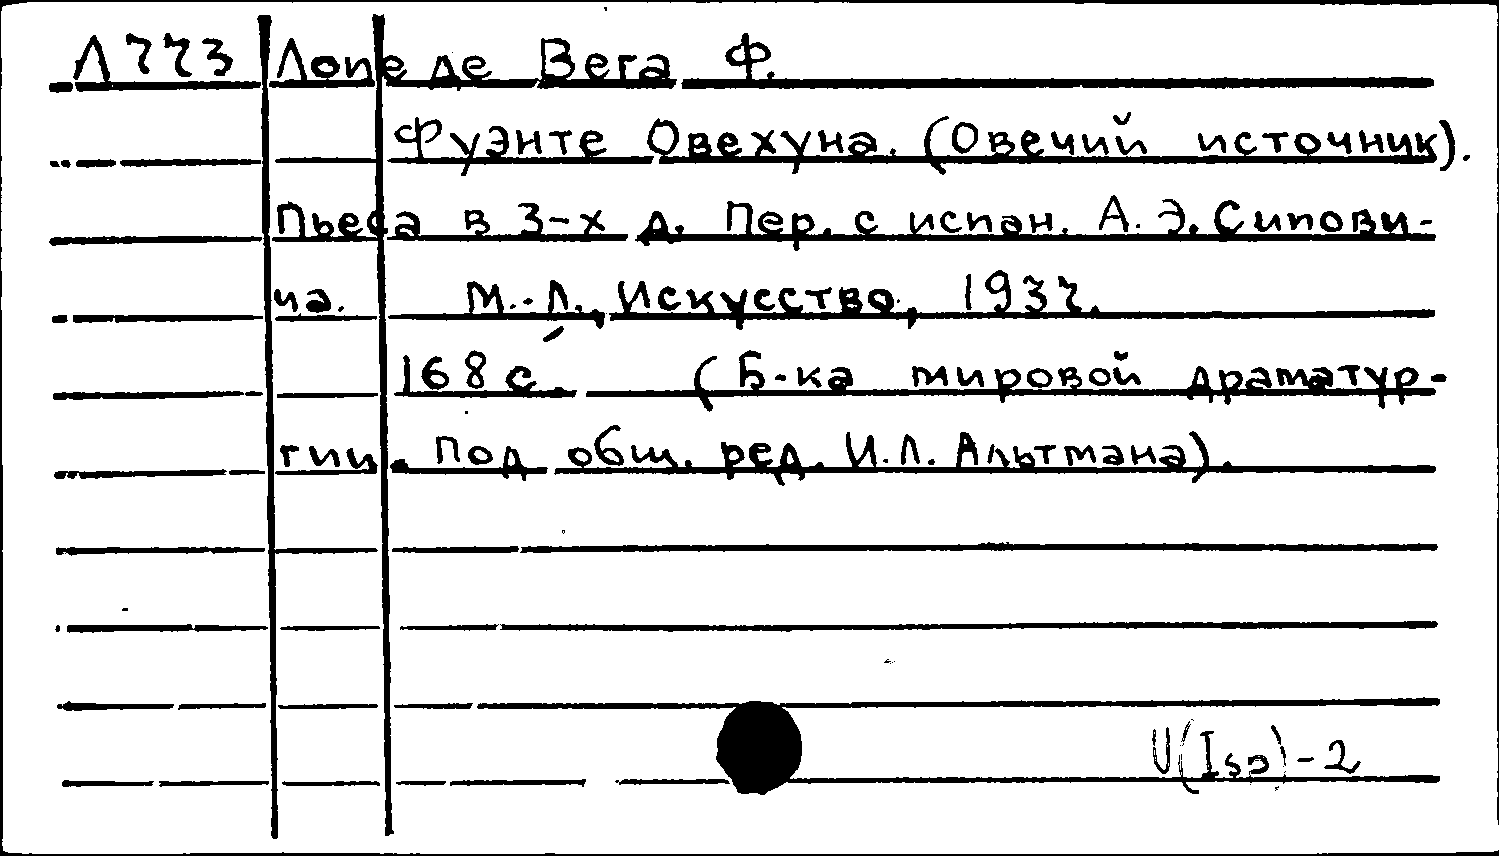 Л773 Лопе де Вега Ф.
Фуэнте Овехуна. (Овечий источник).
Пьеса в 3-х д. Пер. с испан. А. Э. Сипови-
ча. М.-Л., Искусство, 1937.
168 с. (Б-ка мировой драматур-
гии. Под общ. ред. И.Л. Альтмана).
U(Isp)-2